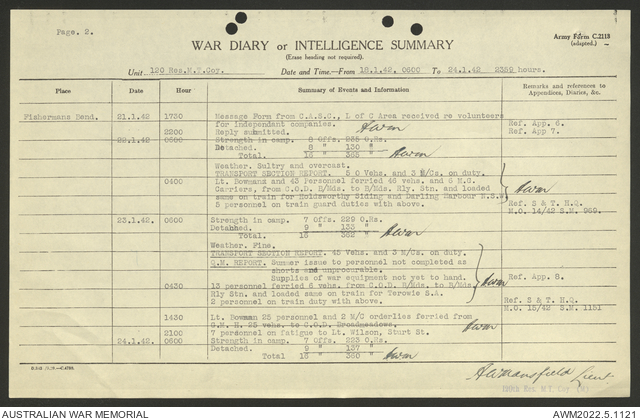 Page. 2.
WAR DIARY or INTELLIGENCE SUMMARY
(Erase heading not required).
Army Form C.2118
(adapted.)
Unit 120 Res.M.T.Coy. Date and Time—From 18.1.42. 0600 To 24.1.42 2359 hours.
Place Date Hour Summary of Events and Information Remarks and references to Appendices, Diaries, &c.
Fishermans Bend. 21.1.42 1730 Message Form from C.A.S.C., L of C Area received re volunteers
for independent companies. Ref. App. 6.
2200 Reply submitted. Ref. App 7.
22.1.42 0600 Strength in camp. 8 Offs. 235 O.Rs.
Detached. 8 " 130 "
Total. 16 " 365 "
Weather. Sultry and overcast.
TRANSPORT SECTION REPORT. 50 Vehs. and 3 M/Cs. on duty.
0400 Lt. Bowmans and 43 Personnel ferried 46 vehs. and 6 M.G.
Carriers, from C.O.D. B/Mds. to B/Mds. Rly. Stn. and loaded
same on train for Holdsworthy Siding and Darling Harbour N.S.W.
5 personnel on train guard duties with above. Ref. S & T. H.Q.
M.O. 14/42 S.M. 965.
23.1.42 0600 Strength in camp. 7 Offs. 229 O.Rs.
Detached. 9 " 133 "
Total. 16 " 362 "
Weather. Fine.
TRANSPORT SECTION REPORT. 45 Vehs. and 3 M/Cs. on duty.
Q.M. REPORT. Summer issue to personnel not completed as
shorts and unprocurable.
Supplies of war equipment not yet to hand. Ref. App 8.
0430 13 personnel ferried 6 vehs. from C.O.D. B/Mds. to B/Mds.
Rly Stn. and loaded same on train for Terowie S.A. Ref. S & T. H.Q.
2 personnel on train duty with above. M.O. 15/42 S.M. 1151
1430 Lt. Bowman 25 personnel and 2 M/C orderlies ferried from
G.M.H. 25 vehs. to C.O.D. Broadmeadows.
2100 7 personnel on fatigue to Lt. Wilson, Sturt St.
24.1.42 0600 Strength in camp. 7 Offs. 223 O.Rs.
Detached. 9 " 137 "
Total 16 " 360 "
Mansfield Lieut.
AUSTRALIAN WAR MEMORIAL
AWM2022.5.1121